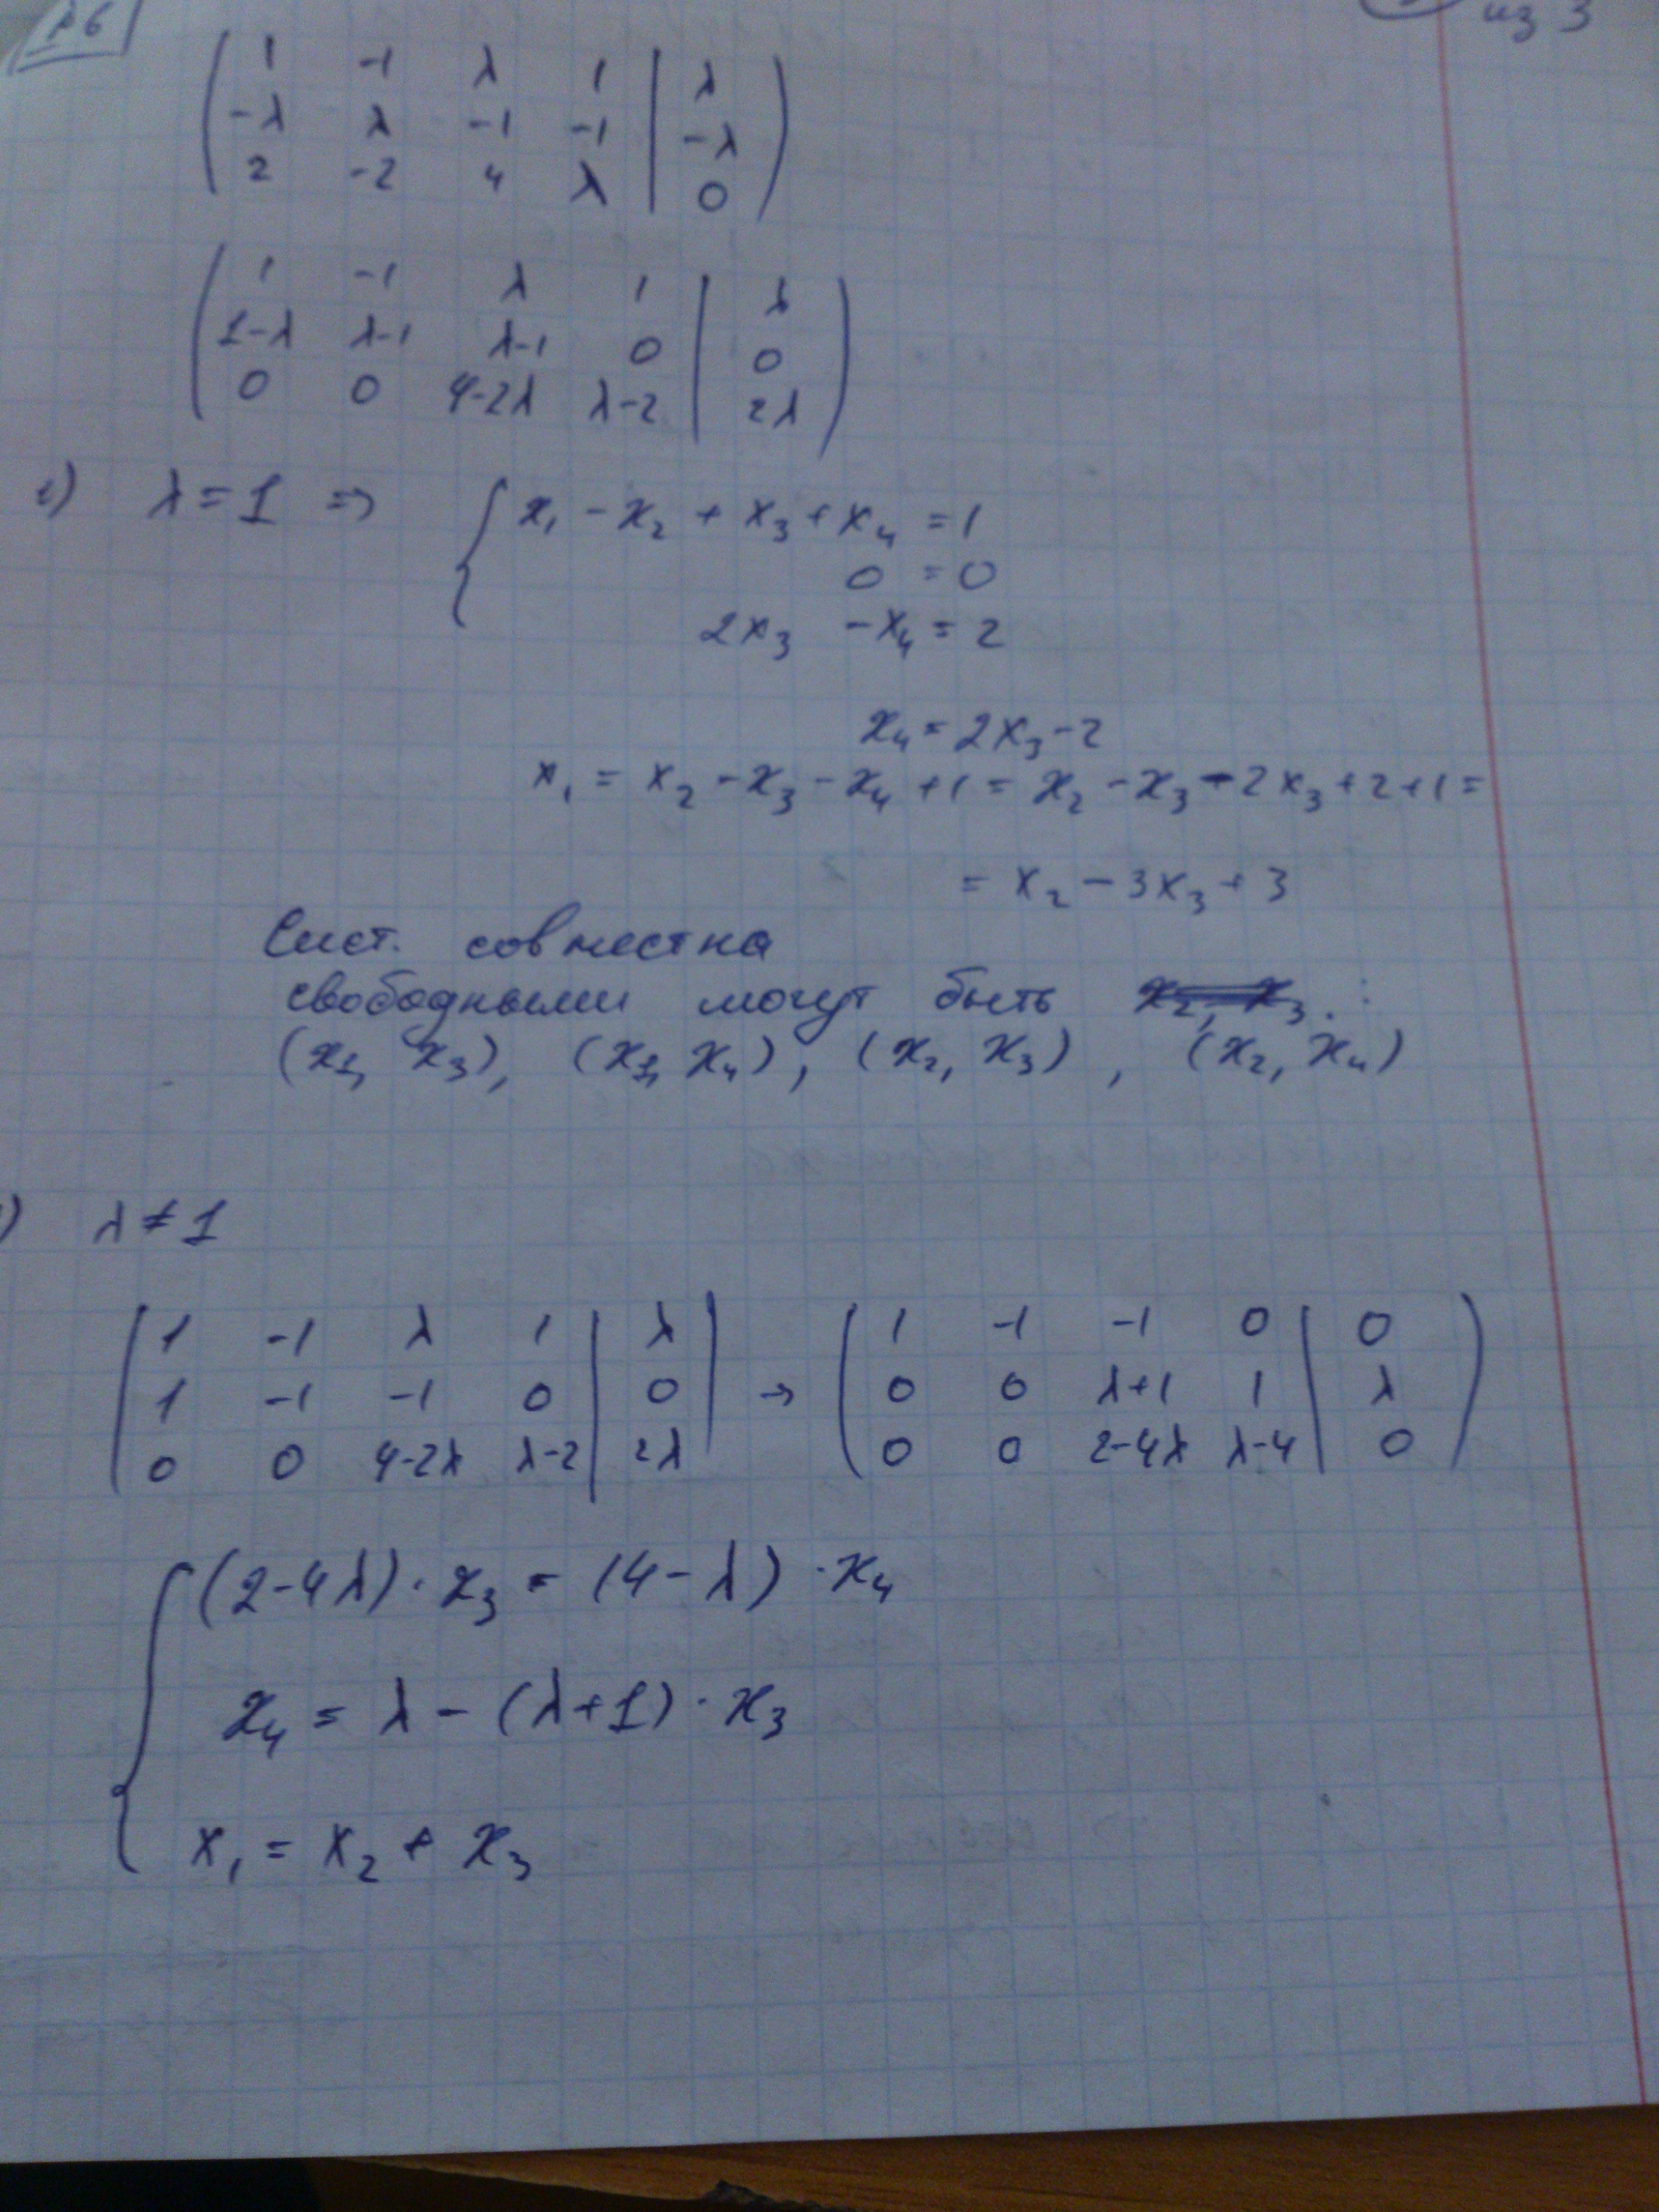 26
из 3
( 1 -1 λ 1 | λ )
( -λ λ -1 -1 | -λ )
( 2 -2 4 λ | 0 )
( 1 -1 λ 1 | λ )
( 1-λ λ-1 λ-1 0 | 0 )
( 0 0 4-2λ λ-2 | 2λ )
1) λ = 1 => { x₁ - x₂ + x₃ + x₄ = 1
0 = 0
2x₃ - x₄ = 2
x₄ = 2x₃ - 2
x₁ = x₂ - x₃ - x₄ + 1 = x₂ - x₃ - 2x₃ + 2 + 1 =
= x₂ - 3x₃ + 3
Сист. совместна
свободными могут быть x₂, x₃. :
(x₁, x₃), (x₁, x₄), (x₂, x₃), (x₂, x₄)
) λ ≠ 1
( 1 -1 λ 1 | λ ) → ( 1 -1 -1 0 | 0 )
( 1 -1 -1 0 | 0 ) → ( 0 0 λ+1 1 | λ )
( 0 0 4-2λ λ-2 | 2λ ) → ( 0 0 2-4λ λ-4 | 0 )
{ (2-4λ) · x₃ = (4-λ) · x₄
x₄ = λ - (λ+1) · x₃
x₁ = x₂ + x₃